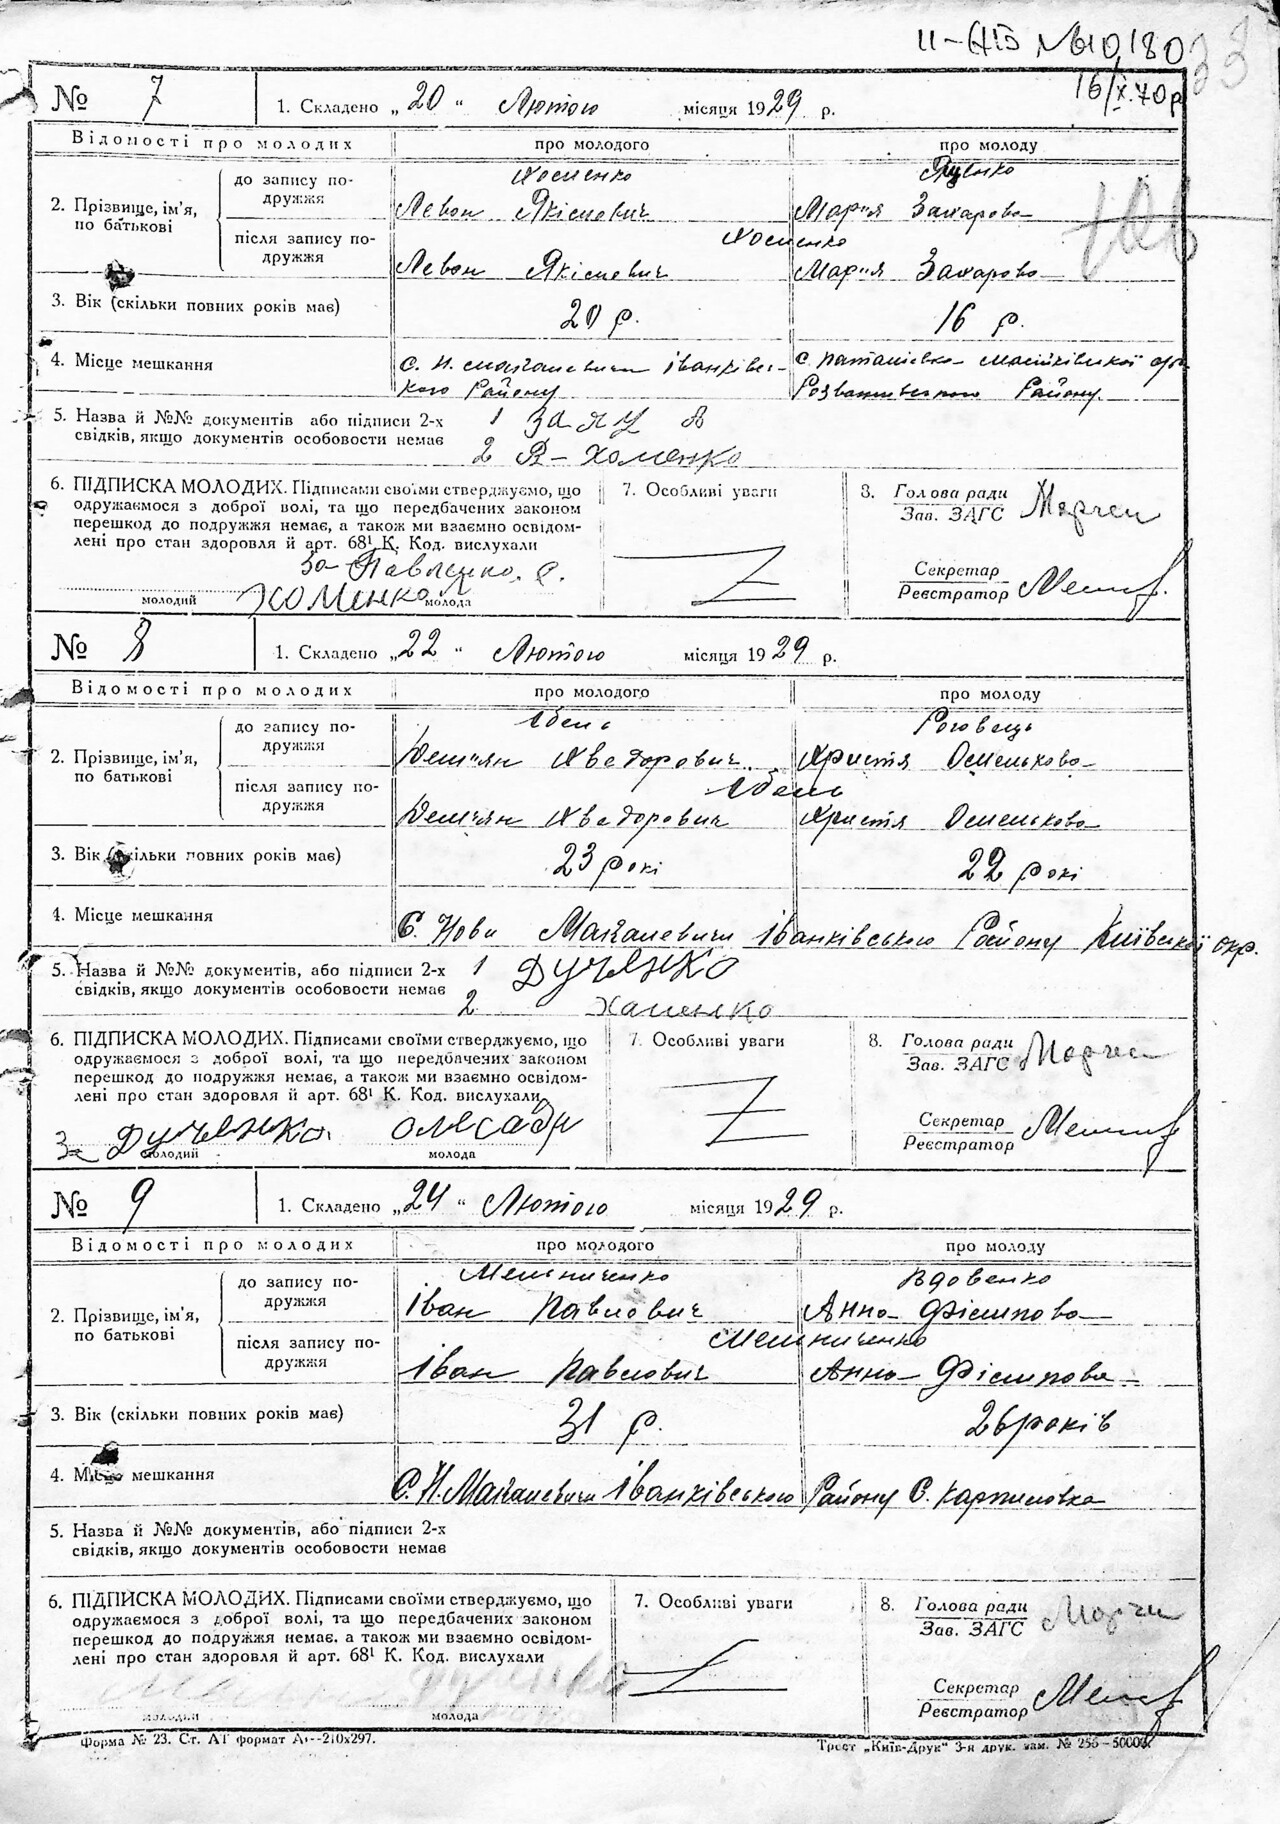 II-АБ № 610180
16/X.70р
33
№ 7 1. Складено „20" Лютого місяця 1929 р.
Відомості про молодих про молодого про молоду
2. Прізвище, ім'я, по батькові
до запису подружжя Хоменко Яценко
Левон Якімович Мария Захарова
після запису подружжя Хоменко
Левон Якімович Мария Захарова
3. Вік (скільки повних років має) 20 р. 16 р.
4. Місце мешкання С. Н. Макалевичи Іванківсь-
кого Району Розважівського Району
5. Назва й №№ документів або підписи 2-х 1 Заяц
свідків, якщо документів особовости немає 2 Я- Хоменко
6. ПІДПИСКА МОЛОДИХ. Підписами своїми стверджуємо, що 7. Особливі уваги 8. Голова ради
одружаємося з доброї волі, та що передбачених законом Зав. ЗАГС
перешкод до подружжя немає, а також ми взаємно освідом-
лені про стан здоров'я й арт. 68¹ К. Код. вислухали Секретар
За Павленко. Реєстратор
Хоменко
молодий молода
№ 8 1. Складено „22" Лютого місяця 1929 р.
Відомості про молодих про молодого про молоду
2. Прізвище, ім'я, по батькові
до запису подружжя Роговець
Демьян Хведорович Христя Омелькова
після запису подружжя
Демьян Хведорович Христя Омелькова
3. Вік (скільки повних років має) 23 рокі 22 рокі
4. Місце мешкання С. Нови Макалевичи Іванківського Району Київської окр.
5. Назва й №№ документів, або підписи 2-х 1 Дученко
свідків, якщо документів особовости немає 2 Хаменко
6. ПІДПИСКА МОЛОДИХ. Підписами своїми стверджуємо, що 7. Особливі уваги 8. Голова ради
одружаємося з доброї волі, та що передбачених законом Зав. ЗАГС
перешкод до подружжя немає, а також ми взаємно освідом-
лені про стан здоров'я й арт. 68¹ К. Код. вислухали Секретар
За Дученко. Реєстратор
молодий молода
№ 9 1. Складено „24" Лютого місяця 1929 р.
Відомості про молодих про молодого про молоду
2. Прізвище, ім'я, по батькові
до запису подружжя Мельниченко Вдовенко
Іван Павлович Анна Філипова
після запису подружжя Мельниченко
Іван Павлович Анна Філипова
3. Вік (скільки повних років має) 31 р. 26 років
4. Місце мешкання С. Н. Макалевичи Іванківського Району С. Карпиловка
5. Назва й №№ документів, або підписи 2-х
свідків, якщо документів особовости немає
6. ПІДПИСКА МОЛОДИХ. Підписами своїми стверджуємо, що 7. Особливі уваги 8. Голова ради
одружаємося з доброї волі, та що передбачених законом Зав. ЗАГС
перешкод до подружжя немає, а також ми взаємно освідом-
лені про стан здоров'я й арт. 68¹ К. Код. вислухали Секретар
Реєстратор
молодий молода
Форма № 23. Ст. АТ формат А4--210x297. Трест „Київ-Друк" 3-я друк. зам. № 255–50000.